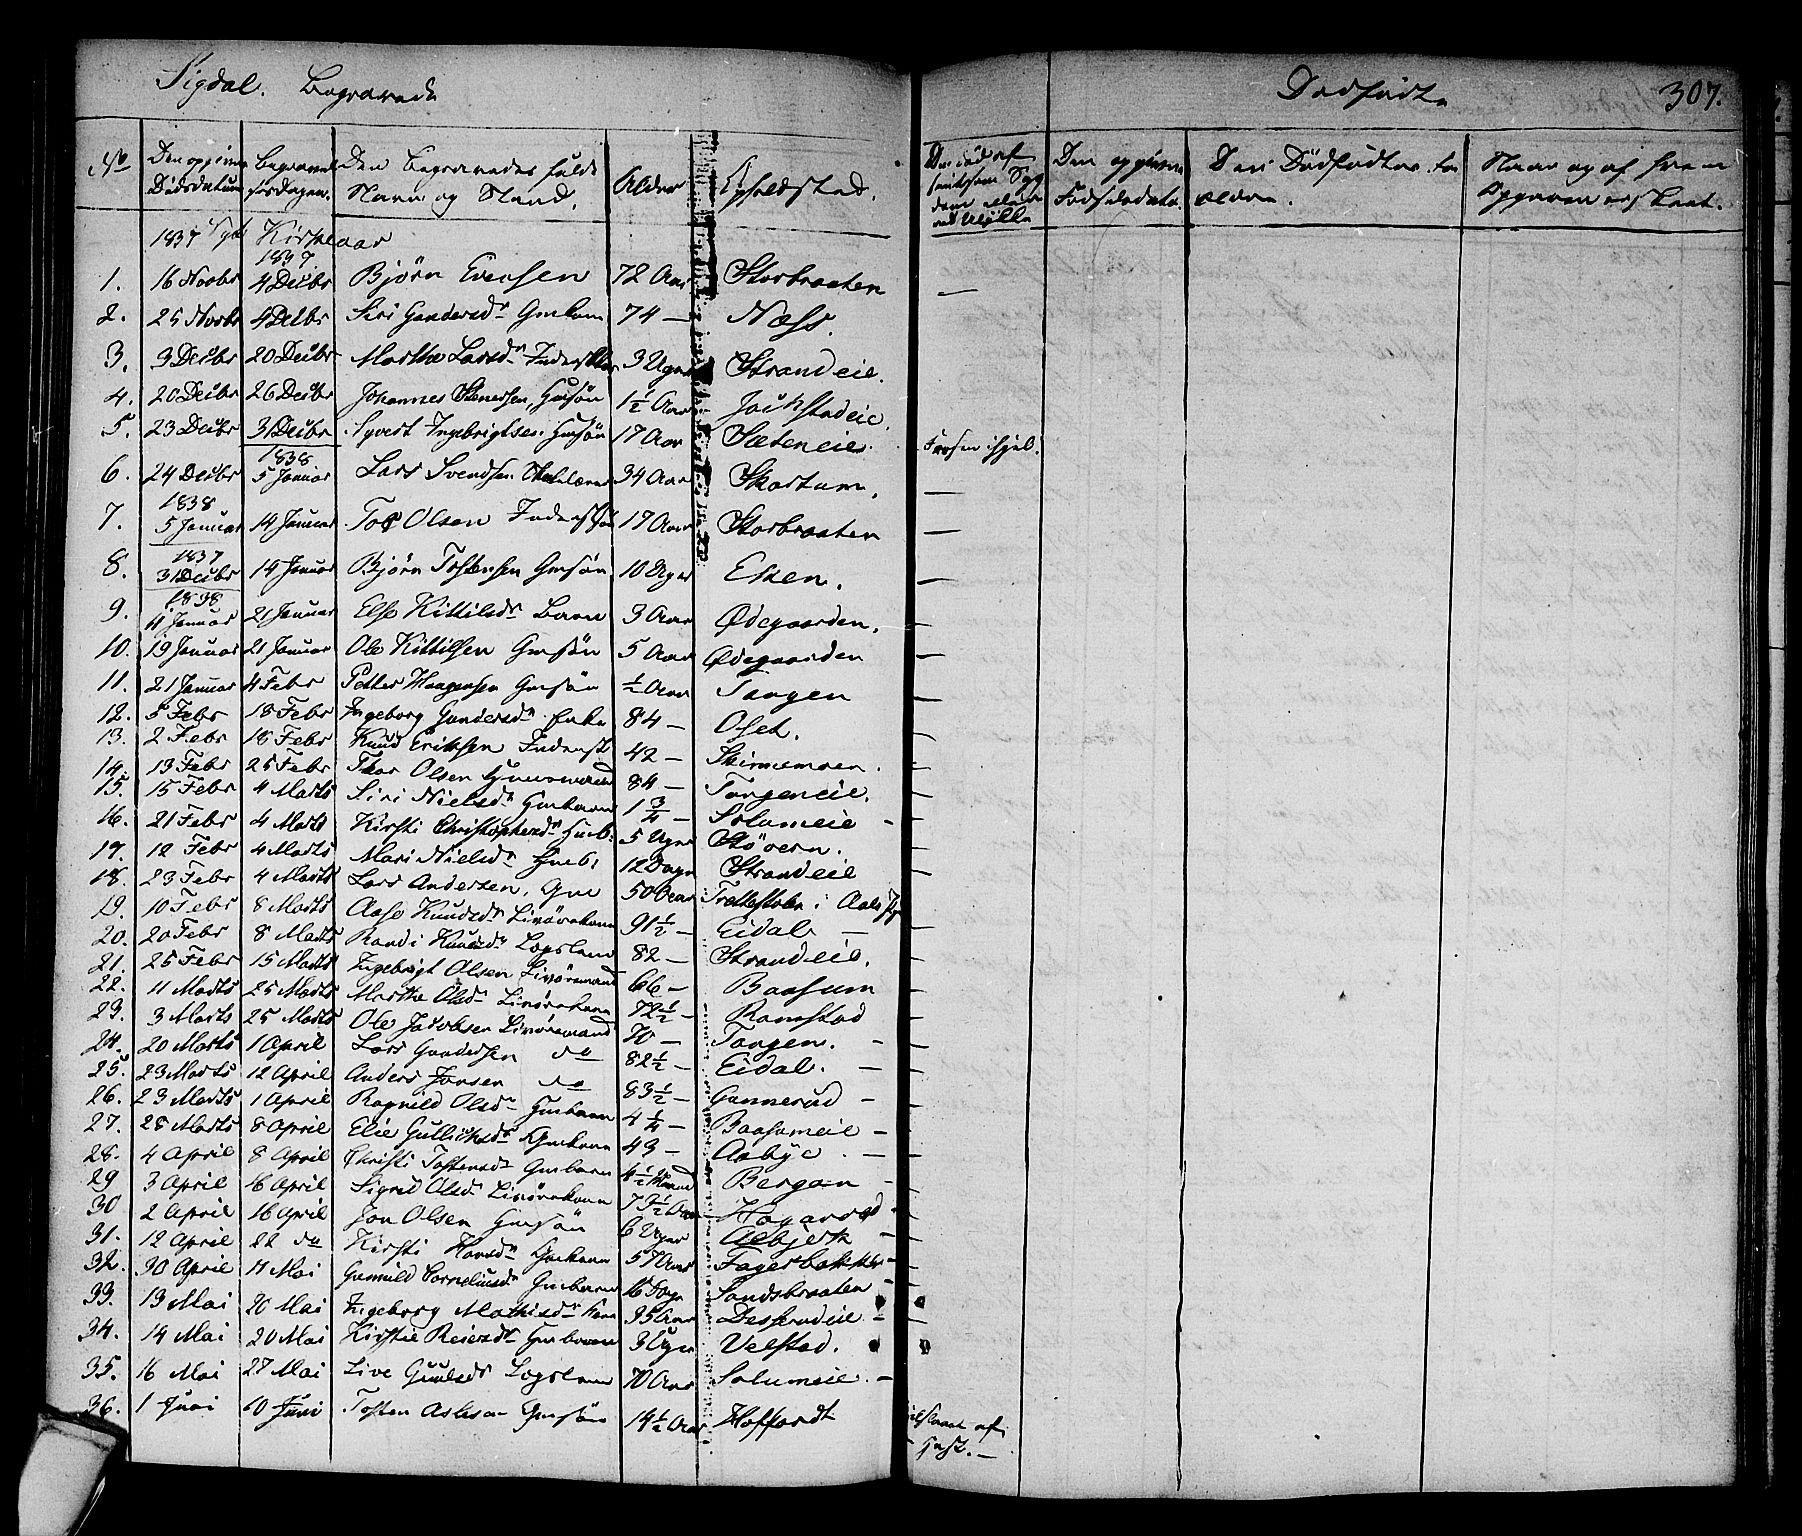 Sigdal. Begravede
Dødfødte 307.
No Den opgivne Dødsdatum Begravelsesdagen. Den Begravedes fulde Navn og Stand. Alder Opholdssted. Den opgivne Fødselsdato. De Dødfødtes Forældre. Naar og af hvem Opgaven er skeet.
1837 Kirkeaar 1837
1. 16 Novbr 4 Decbr Bjørn Evensen 72 Aar Storbraaten —
2. 25 Novbr 4 Decbr Siri Gundersdr 74 — Næss.
3. 9 Decbr 20 Decbr Marthe Larsdr 3 Uger Strandeie.
4. 20 Decbr 26 Decbr Johannes Stenersen, Gmsøn 1½ Aar
5. 23 Decbr 31 Decbr Syvert Ingebrigtsen Gmsøn 17 Aar Sæteneie. Frosen ihjel.
1838
6. 24 Decbr 5 Januar Lars Svendsen 34 Aar Skartum. —
1838
7. 5 Januar 14 Januar Tor Olsen 17 Aar Storbraaten —
1837
8. 31 Decbr 14 Januar Bjørn Tostensen Gmsøn 10 Uger Eken. —
1838
9. 11 Januar 21 Januar Else Kittilsdr Barn 3 Aar Ødegaarden. —
10. 19 Januar 21 Januar Ole Kittilsen Gmsøn 5 Aar Ødegaarden —
11. 21 Januar 4 Febr Petter Haagensen Gmsøn ½ Aar Tangen —
12. 5 Febr 18 Febr Ingeborg Gundersdr Enke 84 — Oset. —
13. 2 Febr 18 Febr Knud Eriksen Inderst 42 — Skinnemoen. —
14. 13 Febr 25 Febr Thor Olsen Huusmand 84 — Tangeneie. —
15. 15 Febr 4 Marts Siri Nielsdr Gmbarn 1 ¾ — Solumeie —
16. 21 Febr 4 Marts Kirsti Christophersdr Husb. 5 Uger Støvern. —
17. 12 Febr 4 Marts Mari Nielsdr Husb. 12 Dage Strandeie —
18. 23 Febr 4 Marts Lars Andersen, Gm 50 Aar Trettestolen i Aals —
19. 10 Febr 8 Marts Aase Knudsdr Livørekone 91½ — Eidal —
20. 20 Febr 8 Marts Randi Knudsdr Lægslem 82 — Strandeie. —
21. 25 Febr 15 Marts Ingebrigt Olsen Livøremand 66 — Baasum —
22. 11 Marts 25 Marts Marthe Olsdr Livørekone 72½ — Ramstad —
23. 3 Marts 25 Marts Ole Jacobsen Livøremand 70 — Tangen. —
24. 20 Marts 1 April Lars Gundersen do 82½ — Eidal. —
25. 23 Marts 12 April Anders Jonsen do 83½ — Gunnerud —
26. 23 Marts 1 April Ragnild Olsdr Gmbarn 4¼ — Baasumeie —
27. 28 Marts 8 April Elie Gulliksdr Gmkone 43 — Aabye —
28. 4 April 8 April Christi Tostensdr Gmbarn 4½ Maaned Bergan —
29 3 April 16 April Sigrid Olsdr Livørekone 73½ Aar
30 2 April 16 April Jon Olsen Gmsøn 6 Uger
31. 12 April 22 do Kirsti Hansdr Gmkone 57 Aar Fagerbakken —
32. 30 April 11 Mai Gunnild Corneliusdr Gmbarn 16 Dage Sandsbraaten
33. 13 Mai 20 Mai Ingeborg Mathisdr Kone 35 Aar Desseradeie —
34. 14 Mai 20 Mai Kirstie Reiersdr Gmbarn 3 Uger Velstad.
35. 16 Mai 27 Mai Live Lægslem 70 Aar Solumeie —
36. 1 Juni 10 Juni Tosten Aslesen Gmsøn 14½ Aar Hoffardt ihjelslaaet af Hest. —